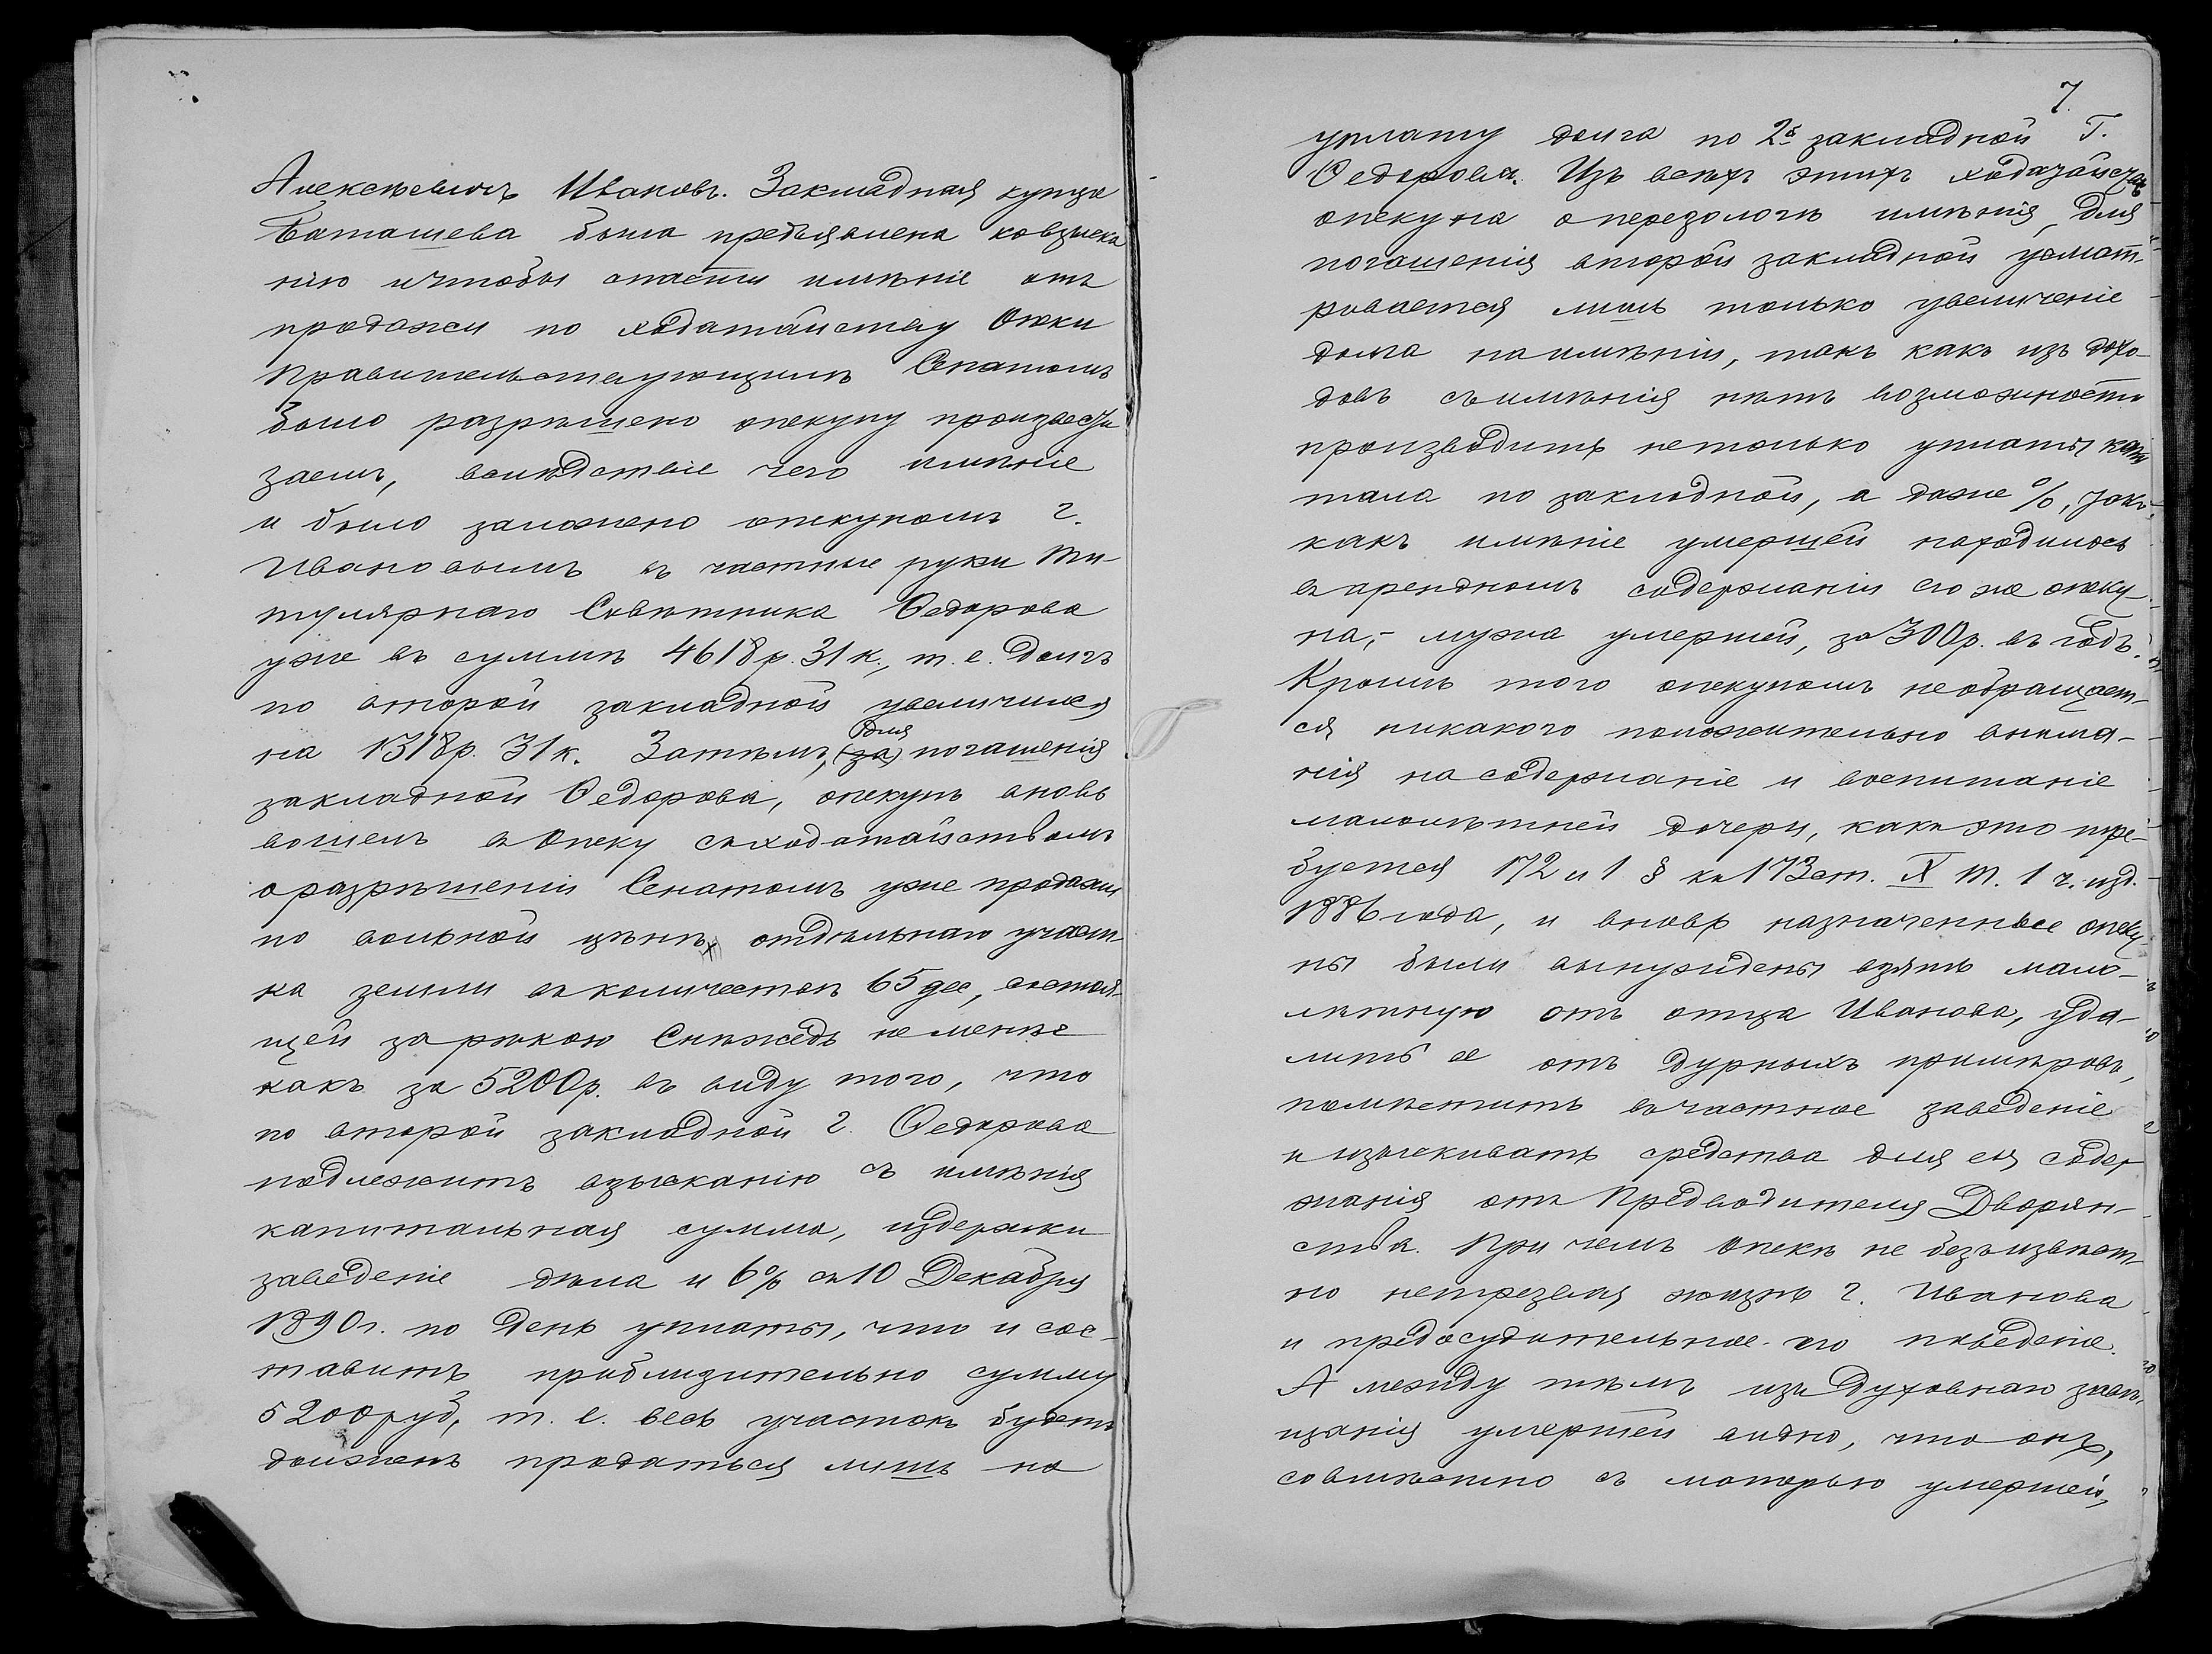 Алексѣевичъ Ивановъ. Закладная купца
Баташева была предъявлена ко взыска
нію и чтобы спасти имѣніе отъ
продажи по ходатайству Опеки
Правительствующимъ Сенатомъ
было разрѣшено опекуну произвести
заемъ, вслѣдствіе чего имѣніе
и было заложено опекуномъ г.
Ивановымъ въ частныя руки Ти-
тулярнаго Совѣтника Ѳедорова
уже въ суммѣ 4618 р. 31 к., т. е. долгъ
по второй закладной увеличился
на 1318 р. 31 к. Затѣмъ, (за) для погашенія
закладной Ѳедорова, опекунъ вновь
вошелъ въ Опеку съ ходатайствомъ
о разрѣшеніи Сенатомъ уже продажи
по вольной цѣнѣ отдѣльнаго участ-
ка земли въ количествѣ 65 дес, состоя-
щей за рѣкою Снѣжедь не менѣе
какъ за 5200 р. въ виду того, что
по второй закладной г. Ѳедорова
подлежитъ взысканію съ имѣнія
капитальная сумма, издержки
за веденіе дѣла и 6% съ 10 Декабря
1890 г. по день уплаты, что и сос-
тавитъ приблизительно сумму
5200 руб, т. е. весь участокъ будетъ
долженъ продаться лишь на
7.
уплату долга по 2й закладной Г.
Ѳедорова. Изъ всѣхъ этихъ ходатайствъ
опекуна о перезалогѣ имѣнія для
погашенія второй закладной усмат-
ривается лишь только увеличеніе
долга на имѣніи, такъ какъ изъ дохо-
довъ съ имѣнія нѣтъ возможности
производить не только уплаты капи
тала по закладной, а даже %, такъ
какъ имѣніе умершей находилось
въ арендномъ содержаніи его же опеку-
на,- мужа умершей, за 300 р. въ годъ.
Кромѣ того опекуномъ не обращает-
ся никакого положительно внима-
нія на содержаніе и воспитаніе
малолѣтней дочери, какъ это тре-
буется 172 и 1 § къ 173 ст. X Т. 1 ч. изд.
1886 года, и вновь назначенные опеку-
ны были вынуждены взять мало-
лѣтнюю отъ отца Иванова, уда-
лить ее отъ дурныхъ примѣровъ,
помѣстить въ частное заведеніе
и изыскивать средства для ея содер
жанія отъ Предводителя Дворян-
ства. При чемъ Опекѣ не безъизвѣст-
но нетрезвая жизнь г. Иванова
и предосудительное его поведеніе.
А между тѣмъ изъ Духовнаго завѣ-
щанія умершей видно, что онъ,
совмѣстно съ матерью умершей,